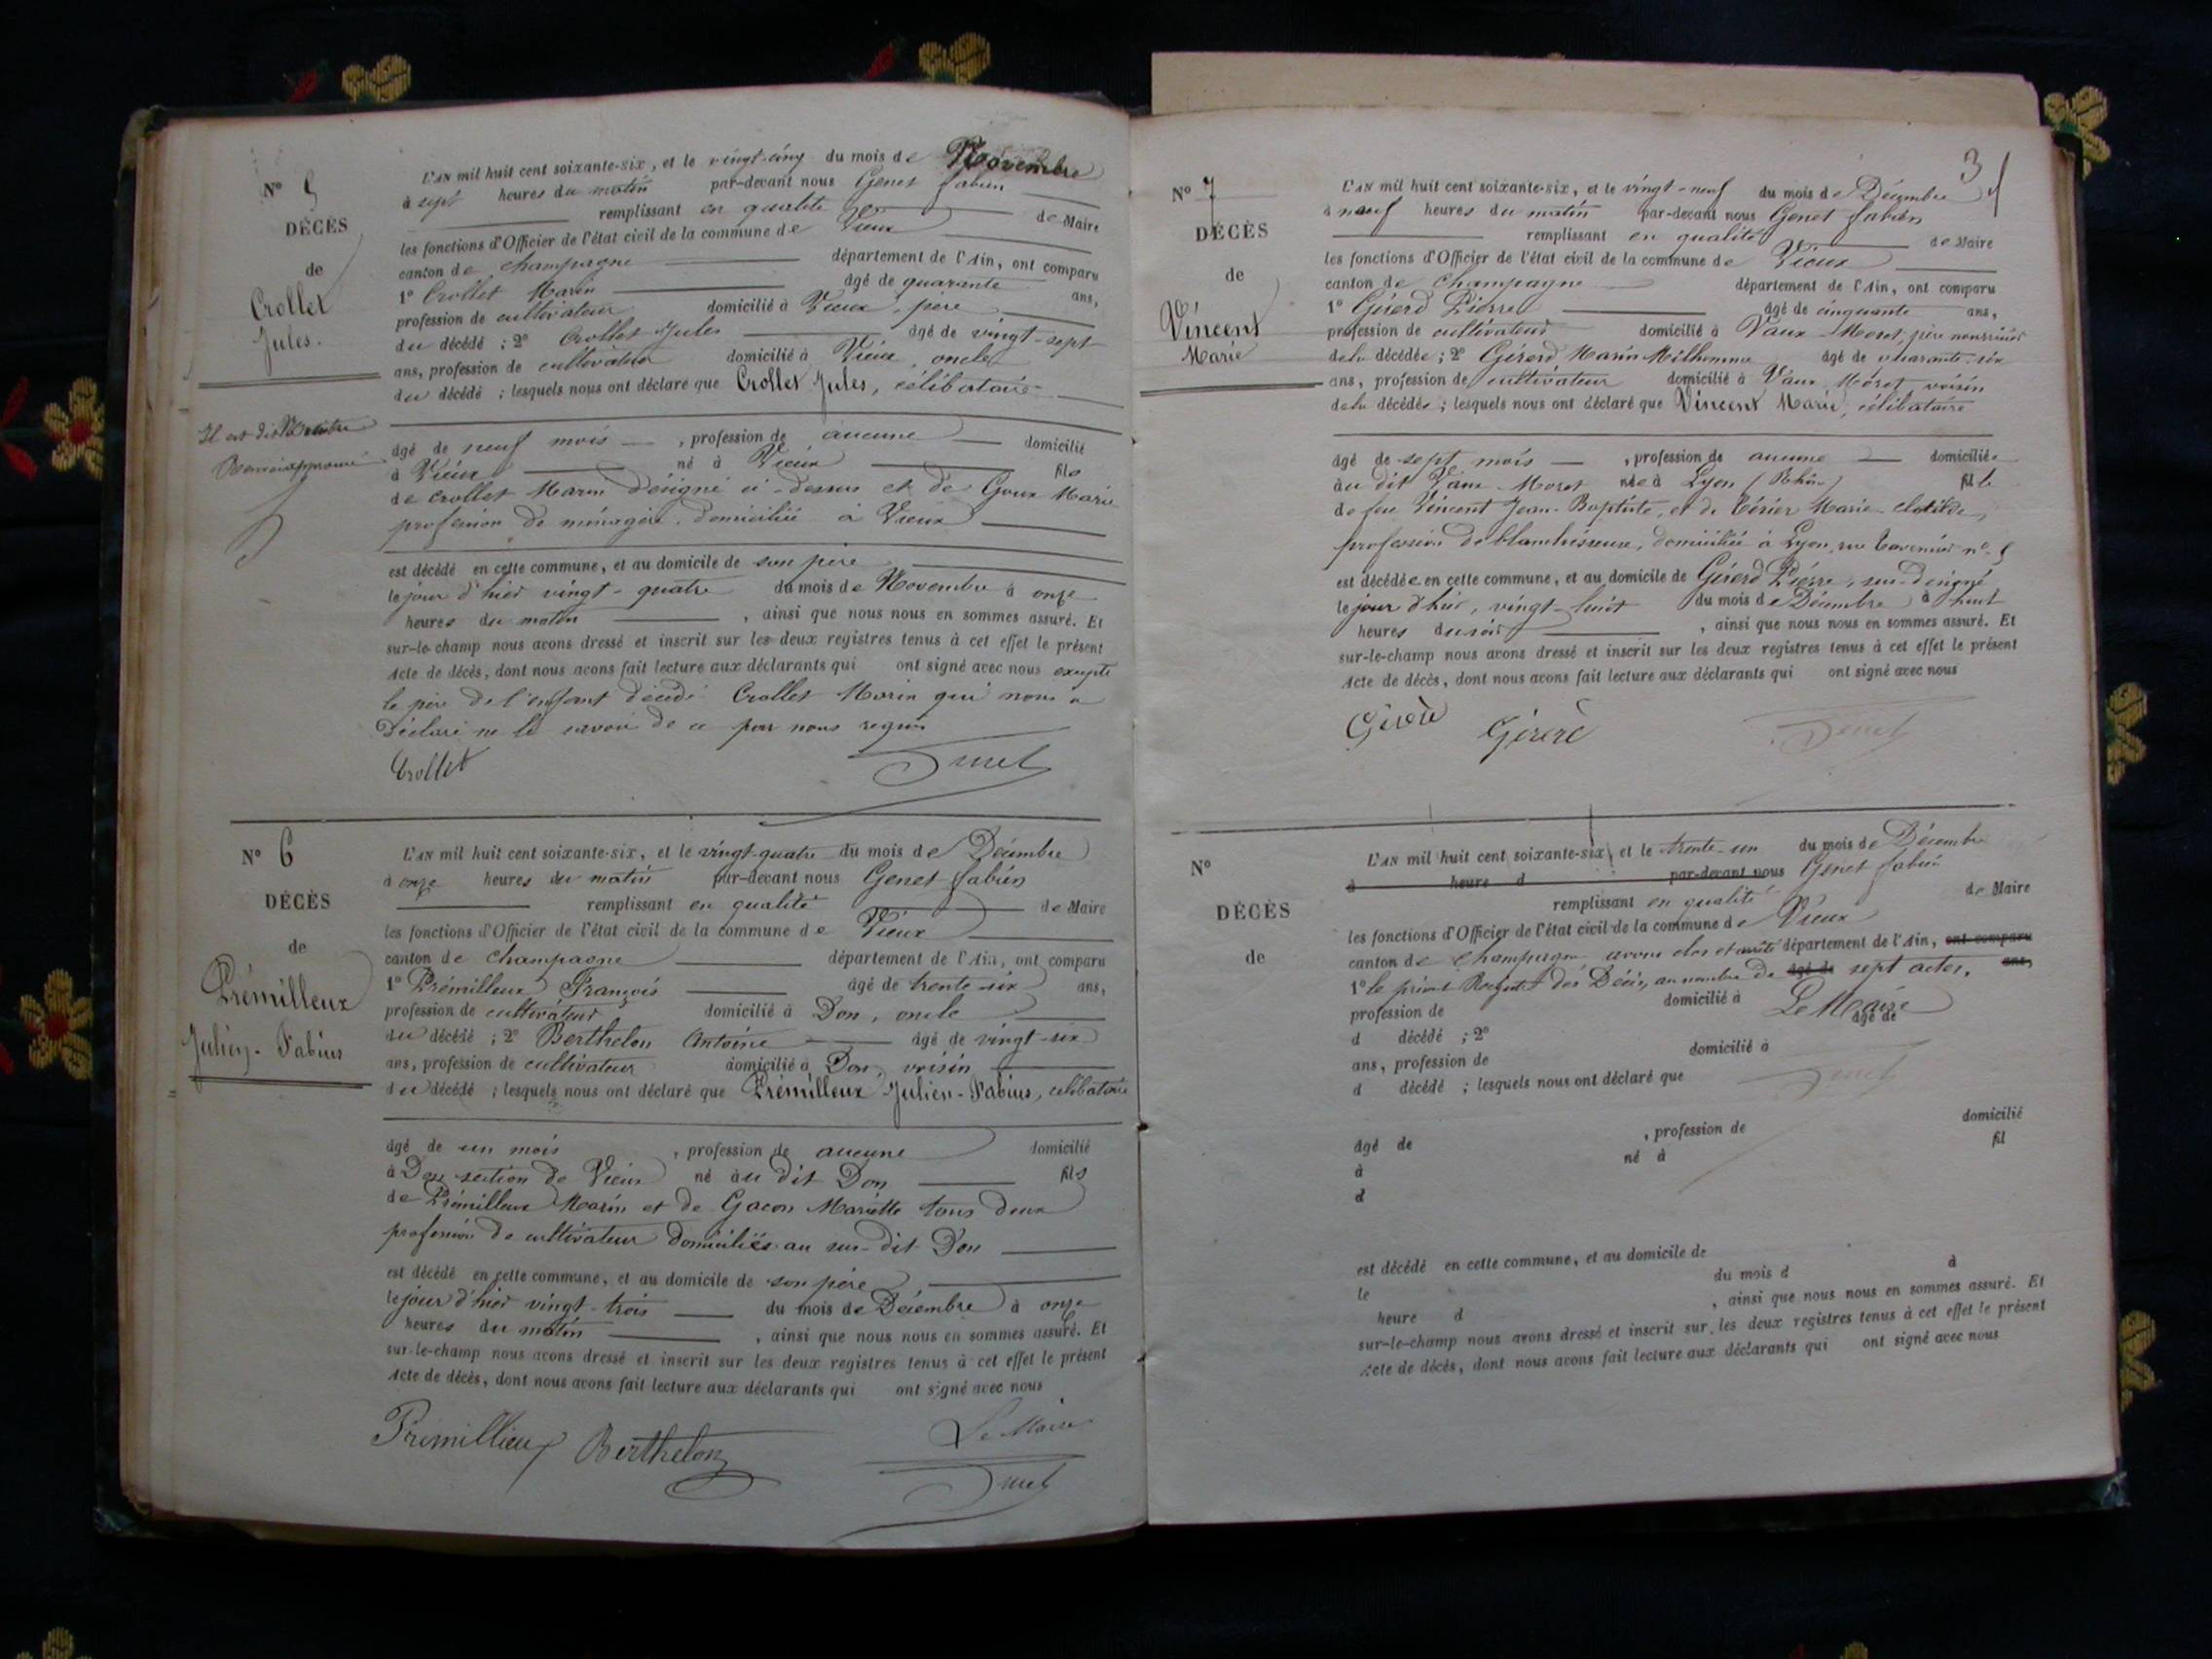 N° 5
DÉCÈS
de
Crollet
Jules.
Il est dit Novembre
L'AN mil huit cent soixante-six, et le vingt-cinq du mois de Novembre
à sept heures du matin par-devant nous Genet fabien
remplissant en qualité de Maire
les fonctions d'Officier de l'état civil de la commune de Vieux
canton de Champagne département de l'Ain, ont comparu
1° Crollet Marin âgé de quarante ans,
profession de cultivateur domicilié à Vieux, père
du décédé ; 2° Crollet Jules âgé de vingt-sept
ans, profession de cultivateur domicilié à Vieux, oncle
du décédé ; lesquels nous ont déclaré que Crollet Jules, célibataire
âgé de neuf mois, profession de aucune domicilié
à Vieux né à Vieux fils
de Crollet Marin désigné ci-dessus et de Goux Marie
profession de ménagère, domiciliée à Vieux
est décédé en cette commune, et au domicile de son père
le jour d'hier vingt-quatre du mois de Novembre à onze
heures du matin, ainsi que nous nous en sommes assuré. Et
sur-le-champ nous avons dressé et inscrit sur les deux registres tenus à cet effet le présent
Acte de décès, dont nous avons fait lecture aux déclarants qui ont signé avec nous excepté
le père de l'enfant décédé Crollet Marin qui nous a
déclaré ne le savoir de ce par nous requis
Crollet
N° 6
DÉCÈS
de
Prémilleux
Julien-Fabius
L'AN mil huit cent soixante-six, et le vingt-quatre du mois de Décembre
à onze heures du matin par-devant nous Genet fabien
remplissant en qualité de Maire
les fonctions d'Officier de l'état civil de la commune de Vieux
canton de Champagne département de l'Ain, ont comparu
1° Prémilleux François âgé de trente-six ans,
profession de cultivateur domicilié à Don, oncle
du décédé ; 2° Berthelon Antoine âgé de vingt-six
ans, profession de cultivateur domicilié à Don, voisin
du décédé ; lesquels nous ont déclaré que Prémilleux Julien-Fabius, célibataire
âgé de un mois, profession de aucune domicilié
à Don section de Vieux né au dit Don fils
de Prémilleux Marin et de Gacon Mariette tous deux
profession de cultivateur domiciliés au sus-dit Don
est décédé en cette commune, et au domicile de son père
le jour d'hier vingt-trois du mois de Décembre à onze
heures du matin, ainsi que nous nous en sommes assuré. Et
sur-le-champ nous avons dressé et inscrit sur les deux registres tenus à cet effet le présent
Acte de décès, dont nous avons fait lecture aux déclarants qui ont signé avec nous
Prémillieux Berthelon Le Maire
3
N° 7
DÉCÈS
de
Vincent
Marie
L'AN mil huit cent soixante-six, et le vingt-neuf du mois de Décembre
à neuf heures du matin par-devant nous Genet fabien
remplissant en qualité de Maire
les fonctions d'Officier de l'état civil de la commune de Vieux
canton de Champagne département de l'Ain, ont comparu
1° Gérerd Pierre âgé de cinquante ans,
profession de cultivateur domicilié à Vaux-Moret, père nourricier
de la décédée ; 2° Gérerd Marin Milhomme âgé de quarante-six
ans, profession de cultivateur domicilié à Vaux-Moret, voisin
de la décédée ; lesquels nous ont déclaré que Vincent Marie, célibataire
âgé de sept mois, profession de aucune domiciliée
au dit Vaux-Moret née à Lyon (Rhône) fille
de feu Vincent Jean-Baptiste, et de Marie-Clotilde,
profession de blanchisseuse, domiciliée à Lyon, rue n° 5
est décédée en cette commune, et au domicile de Gérerd Pierre, sus-désigné
le jour d'hier, vingt-huit du mois de Décembre à huit
heures du soir, ainsi que nous nous en sommes assuré. Et
sur-le-champ nous avons dressé et inscrit sur les deux registres tenus à cet effet le présent
Acte de décès, dont nous avons fait lecture aux déclarants qui ont signé avec nous
N°
DÉCÈS
de
L'AN mil huit cent soixante-six, et le trente-un du mois de Décembre
à heure d par-devant nous Genet fabien
remplissant en qualité de Maire
les fonctions d'Officier de l'état civil de la commune de Vieux
canton de Champagne avons clos et arrêté département de l'Ain, ont comparu
1° le présent Registre des Décès, au nombre de âgé de sept actes. ans,
profession de domicilié à Le Maire
d décédé ; 2° âgé de
ans, profession de domicilié à
d décédé ; lesquels nous ont déclaré que
âgé de , profession de domicilié
à né à fil
d
est décédé en cette commune, et au domicile de
le du mois d à
heure d , ainsi que nous nous en sommes assuré. Et
sur-le-champ nous avons dressé et inscrit sur les deux registres tenus à cet effet le présent
Acte de décès, dont nous avons fait lecture aux déclarants qui ont signé avec nous